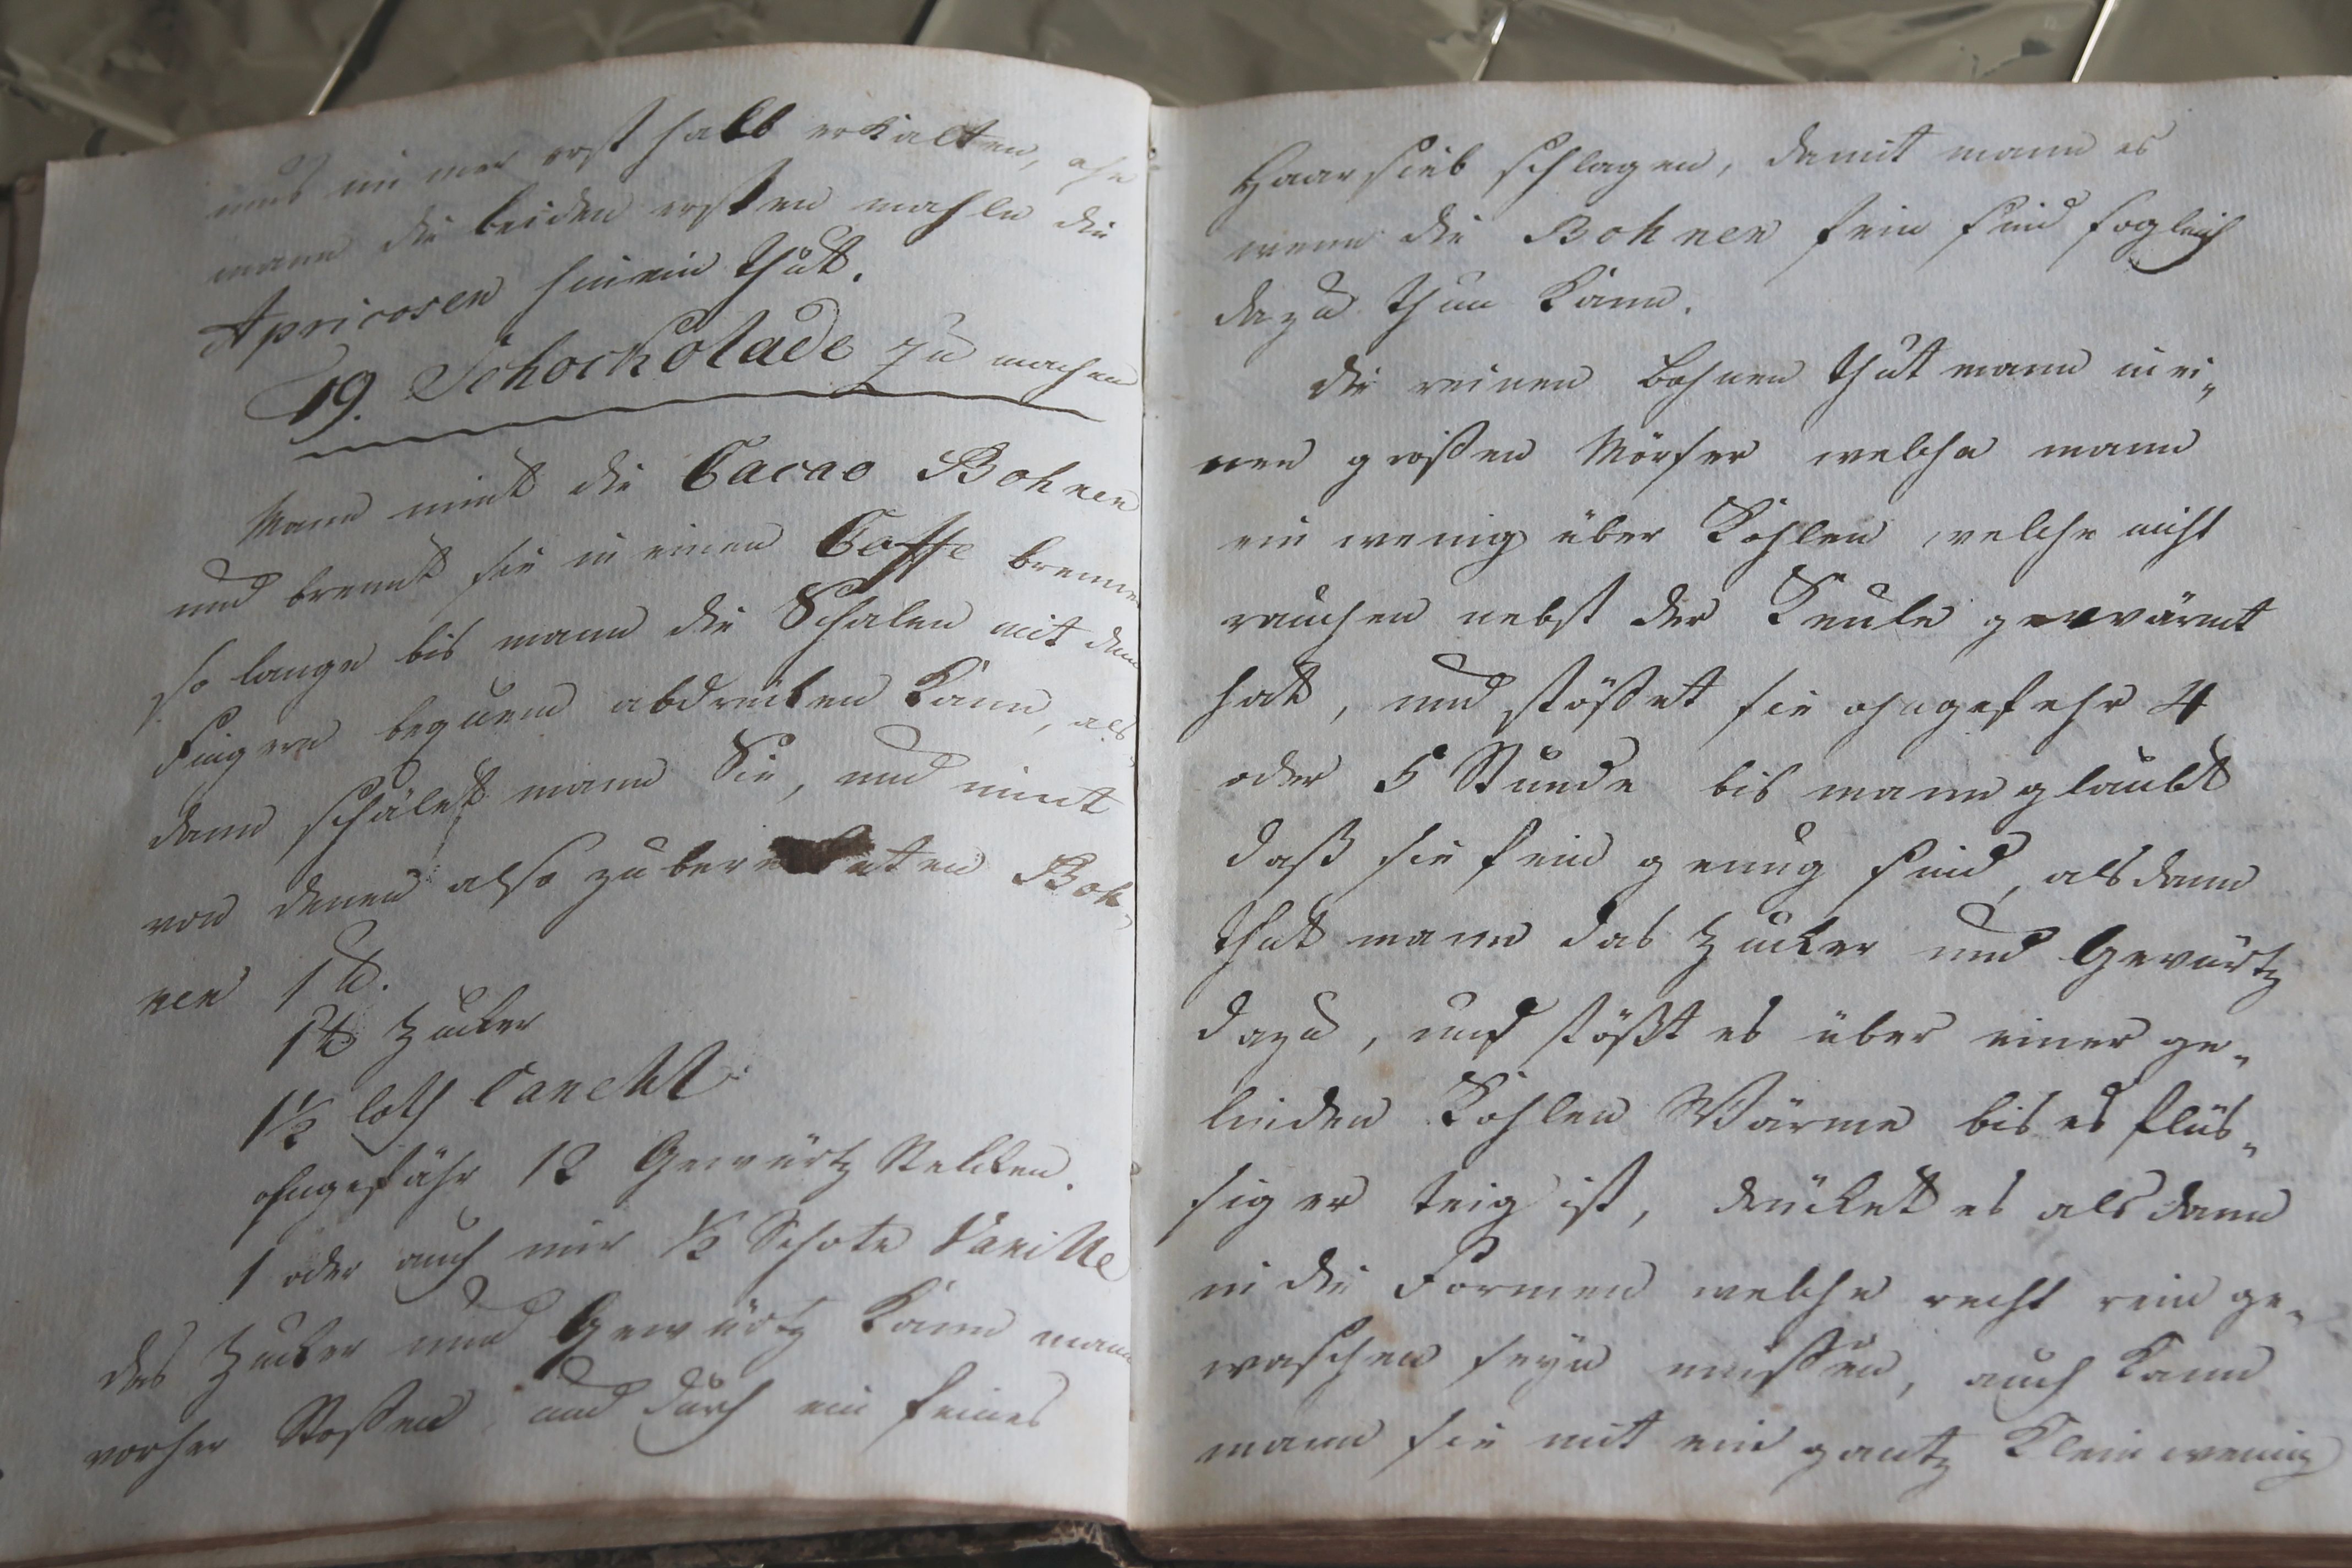 mus im mer erst halb erkalten, ehe
mann die beiden ersten mahle die
Apricosen hinein thut.
19. Schockolade zu machen
Mann nimt die Cacao Bohnen
und brennt sie in einen Caffe brenner
so lange bis mann die Schalen mit den
Fingern bequem abdrücken kann, als
dann schälet mann Sie, und nimt
von denen also zubereiteten Boh-
nen 1 ℔.
1 ℔ Zucker
1½ loth Canehll
ohngefähr 12 Gewürtz Nelcken.
1 oder auch nur ½ Schote Vanille
das Zucker und Gewürtz kann mann
vorher Stoßen und durch ein feines
Haarsieb schlagen, damit mann es
wenn die Bohnen fein sind sogleich
dazu thun kann.
die reinen Bohnen thut mann in ei-
nen großen Mörser welche mann
ein wenig über Kohlen welche nicht
rauchen nebst der Keule gewärmt
hatt, und stößet sie ohngefehr 4
oder 5 Stunde bis mann glaubt
daß sie fein genug sind, alsdann
thut mann das Zucker und Gewürtz
dazu, und stößt es über einer ge-
linden Kohlen Wärme bis es flüs-
siger teig ist, drücket es als dann
in die Formen welche recht rein ge-
waschen seyn müssen, auch kann
mann sie mit ein gantz klein wenig